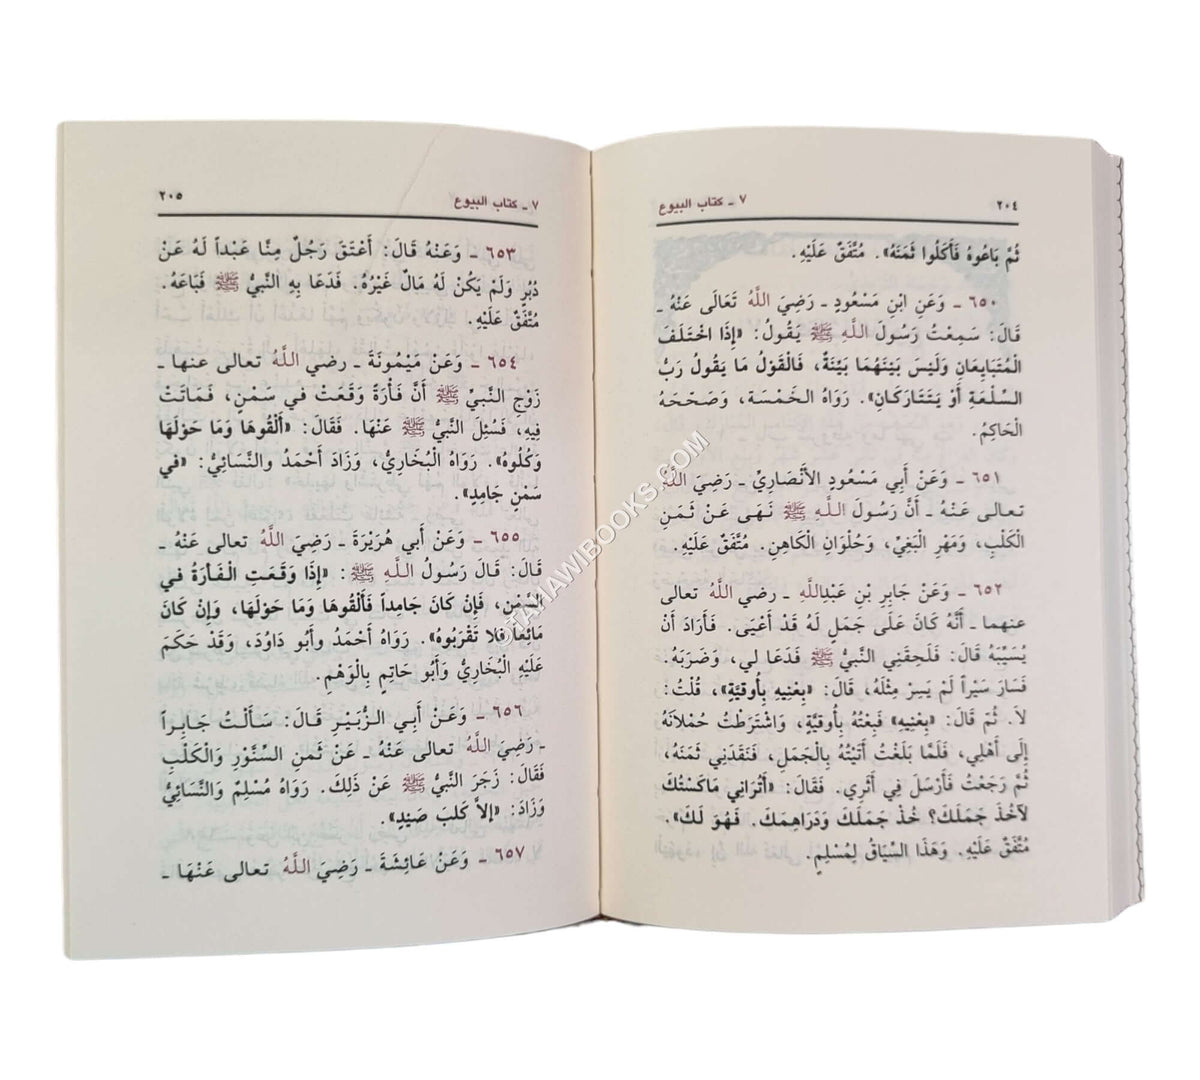 ٢٠٤ ٧ ـ كتاب البيوع
ثُمَّ بَاعُوهُ فَأَكَلُوا ثَمَنَهُ». مُتَّفَقٌ عَلَيْهِ.
٦٥٠ ـ وَعَنِ ابْنِ مَسْعُودٍ ـ رَضِيَ اللَّهُ تَعَالَى عَنْهُ ـ
قَالَ: سَمِعْتُ رَسُولَ اللَّهِ ﷺ يَقُولُ: «إِذَا اخْتَلَفَ
الْمُتَبَايِعَانِ وَلَيْسَ بَيْنَهُمَا بَيِّنَةٌ، فَالْقَوْلُ مَا يَقُولُ رَبُّ
السِّلْعَةِ أَوْ يَتَتَارَكَانِ». رَوَاهُ الْخَمْسَة، وَصَحَّحَهُ
الْحَاكِمُ.
٦٥١ ـ وَعَنْ أَبِي مَسْعُودٍ الأَنْصَارِيِّ ـ رَضِيَ اللَّهُ
تعـالى عَنْـهُ ـ أَنَّ رَسُولَ اللَّهِ ﷺ نَهَى عَنْ ثَمَنِ
الْكَلْبِ، وَمَهْرِ الْبَغِيِّ، وَحُلْوَانِ الْكَاهِنِ. مُتَّفَقٌ عَلَيْهِ.
٦٥٢ ـ وَعَنْ جَابِرِ بْنِ عَبْدِاللَّهِ ـ رضي اللَّهُ تعالى
عنهما ـ أَنَّهُ كَانَ عَلَى جَمَلٍ لَهُ قَدْ أَعْيَى. فَأَرَادَ أَنْ
يُسَيِّبَهُ قَالَ: فَلَحِقَنِي النَّبِيُّ ﷺ فَدَعَا لي، وَضَرَبَهُ.
فَسَارَ سَيْراً لَمْ يَسِرْ مِثْلَهُ، قَالَ: «بِعْنِيهِ بِأُوقِيَّةٍ»، قُلْتُ:
لاَ. ثُمَّ قَالَ: «بِعْنِيهِ» فَبِعْتُهُ بِأُوقِيَّةٍ، وَاشْتَرَطْتُ حُمْلاَنَهُ
إِلَى أَهْلِي، فَلَمَّا بَلَغْتُ أَتَيْتُهُ بِالْجَمَلِ، فَنَقَدَنِي ثَمَنَهُ،
ثُمَّ رَجَعْتُ فَأَرْسَلَ فِي أَثَرِي. فَقَالَ: «أَتُرَانِي مَاكَسْتُكَ
لآخُذَ جَمَلَكَ؟ خُذْ جَمَلَكَ وَدَرَاهِمَكَ. فَهُوَ لَكَ».
مُتَّفَقٌ عَلَيْهِ. وَهَذَا السِّيَاقُ لِمُسْلِمٍ.
٧ ـ كتاب البيوع ٢٠٥
٦٥٣ ـ وَعَنْهُ قَالَ: أَعْتَقَ رَجُلٌ مِنَّا عَبْداً لَهُ عَنْ
دُبُرٍ وَلَمْ يَكُنْ لَهُ مَالٌ غَيْرُهُ. فَدَعَا بِهِ النَّبِيُّ ﷺ فَبَاعَهُ.
مُتَّفَقٌ عَلَيْهِ.
٦٥٤ ـ وَعَنْ مَيْمُونَةَ ـ رضي اللَّهُ تعالى عنها ـ
زَوْجِ النَّبِيِّ ﷺ أَنَّ فَأْرَةً وَقَعَتْ في سَمْنٍ، فَمَاتَتْ
فِيهِ، فَسُئِلَ النَّبِيُّ ﷺ عَنْهَا. فَقَالَ: «أَلْقُوهَا وَمَا حَوْلَهَا
وَكُلُوهُ». رَوَاهُ الْبُخَارِيُّ، وَزَادَ أَحْمَدُ والنَّسَائِيُّ: «في
سَمْنٍ جَامِدٍ».
٦٥٥ ـ وَعَنْ أَبي هُرَيْرَةَ ـ رَضِيَ اللَّهُ تعالى عَنْهُ ـ
قَالَ: قَالَ رَسُولُ اللَّهِ ﷺ: «إِذَا وَقَعَتِ الْفَأْرَةُ في
السَّمْنِ، فَإِنْ كَانَ جَامِداً فَأَلْقُوهَا وَمَا حَوْلَهَا، وَإِنْ كَانَ
مَائِعاً فَلا تَقْرَبُوهُ». رَوَاهُ أَحْمَدُ وأَبُو دَاوُدَ، وَقَدْ حَكَمَ
عَلَيْهِ الْبُخَارِيُّ وَأَبُو حَاتِمٍ بِالْوَهْمِ.
٦٥٦ ـ وَعَنْ أَبِي الزُّبَيْرِ قَالَ: سَأَلْتُ جَابِراً
ـ رَضِيَ اللَّهُ تعالى عَنْهُ ـ عَنْ ثَمَنِ السِّنَّوْرِ وَالْكَلْبِ
فَقَالَ: زَجَرَ النَّبِيُّ ﷺ عَنْ ذَلِكَ. رَوَاهُ مُسْلِمٌ وَالنَّسَائِيُّ
وَزَادَ: «إِلاَّ كَلبَ صَيْدٍ».
٦٥٧ ـ وَعَنْ عَائِشَةَ ـ رَضِيَ اللَّهُ تعالى عَنْهَا ـ
©TAHAWIBOOKS.COM